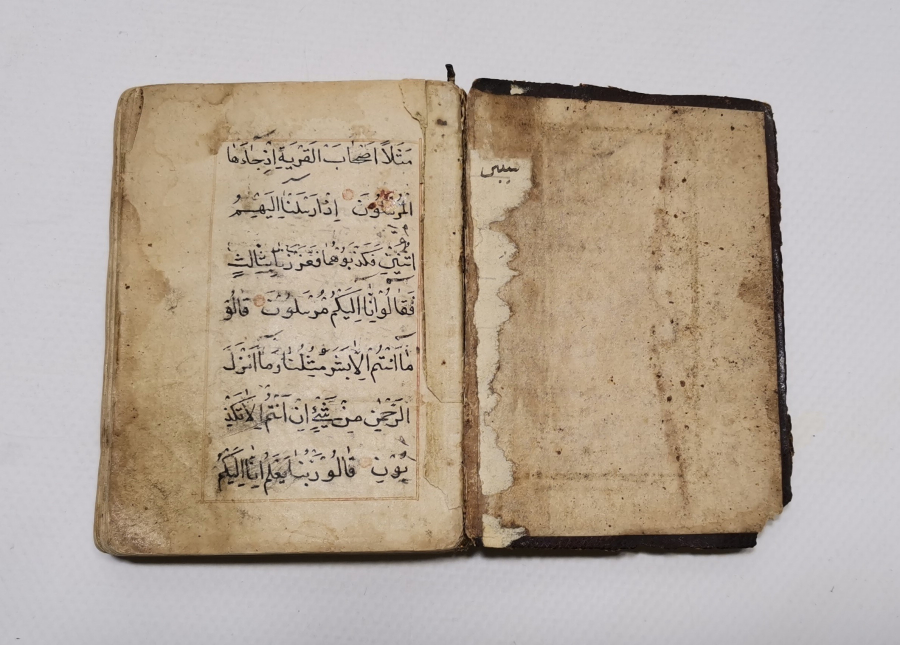 مَثَلاً اَصْحَابَ الْقَرْيَةِ اِذْ جَاءَهَا
الْمُرْسَلُونَ اِذْ اَرْسَلْنَا اِلَيْهِمُ
اثْنَيْنِ فَكَذَّبُوهُمَا فَعَزَّزْنَا بِثَالِثٍ
فَقَالُوا اِنَّا اِلَيْكُمْ مُرْسَلُونَ قَالُو
مَا اَنْتُمْ اِلَّا بَشَرٌ مِثْلُنَا وَمَا اَنْزَلَ
الرَّحْمٰنُ مِنْ شَيْءٍ اِنْ اَنْتُمْ اِلَّا تَكْذِ
بُونَ قَالُو رَبُّنَا يَعْلَمُ اِنَّا اِلَيْكُمْ